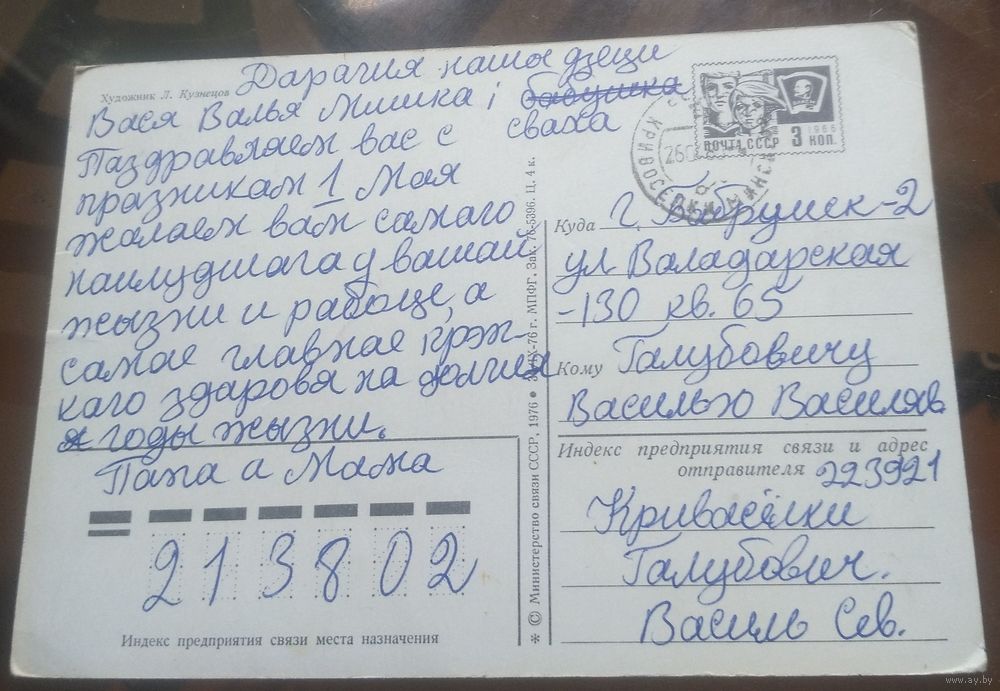 Художник Л. Кузнецов
Дарагия наша дзеци
Вася Валья Мишка і ~~бабушка~~
сваха
Паздравляем вас с
празникам 1 Мая
жалаем вам самаго
наилудшага у вашай
жызни и рабоце, а
самае главнае крэп-
каго здаровя на долгия
годы жызни.
Папа а Мама
213802
Индекс предприятия связи места назначения
* © Министерство связи СССР, 1976 • 76 г. МПФГ. Зак. 76-5396. Ц. 4 к.
ПОЧТА СССР 3 КОП.
1966
КРИВОСЕЛКИ
Куда г. Бабруйск-2
ул Валадарская
-130 кв. 65
Кому Галубовичу
Василью Василяв.
Индекс предприятия связи и адрес
отправителя 223921
Кривасёлки
Галубович.
Василь Сев.
www.ay.by